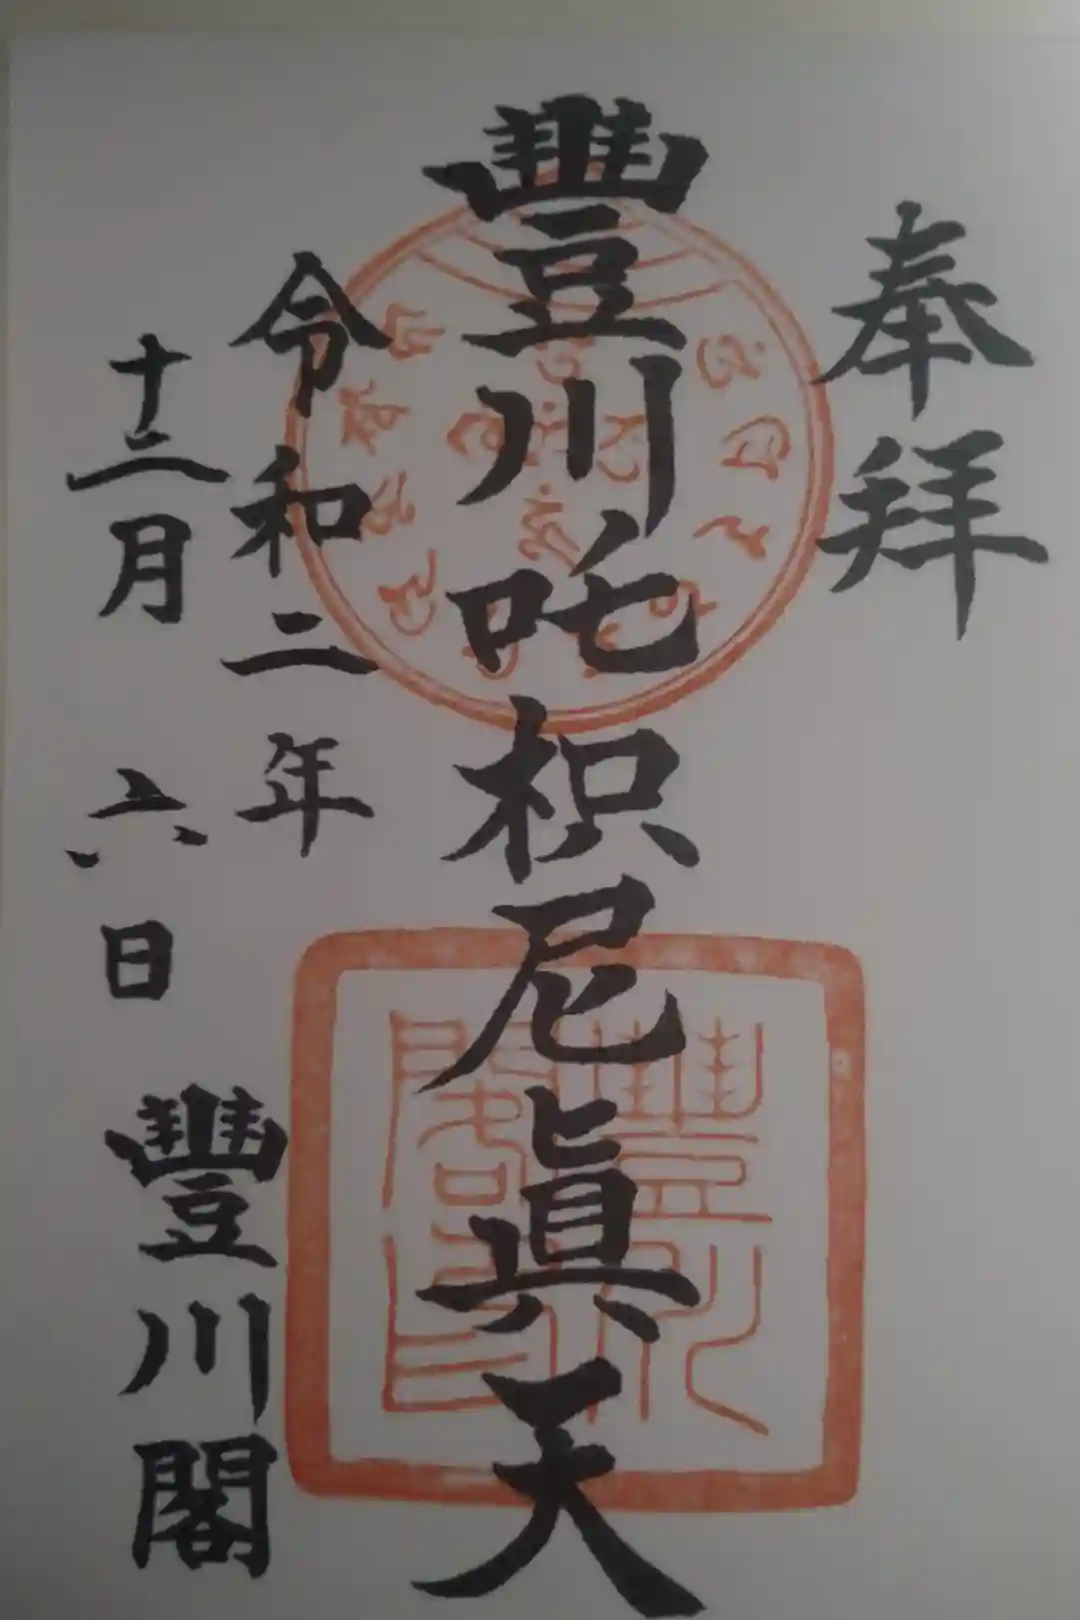 奉拜
豐川吒枳尼眞天
令和二年
十二月六日
豐川閣
豐川閣印